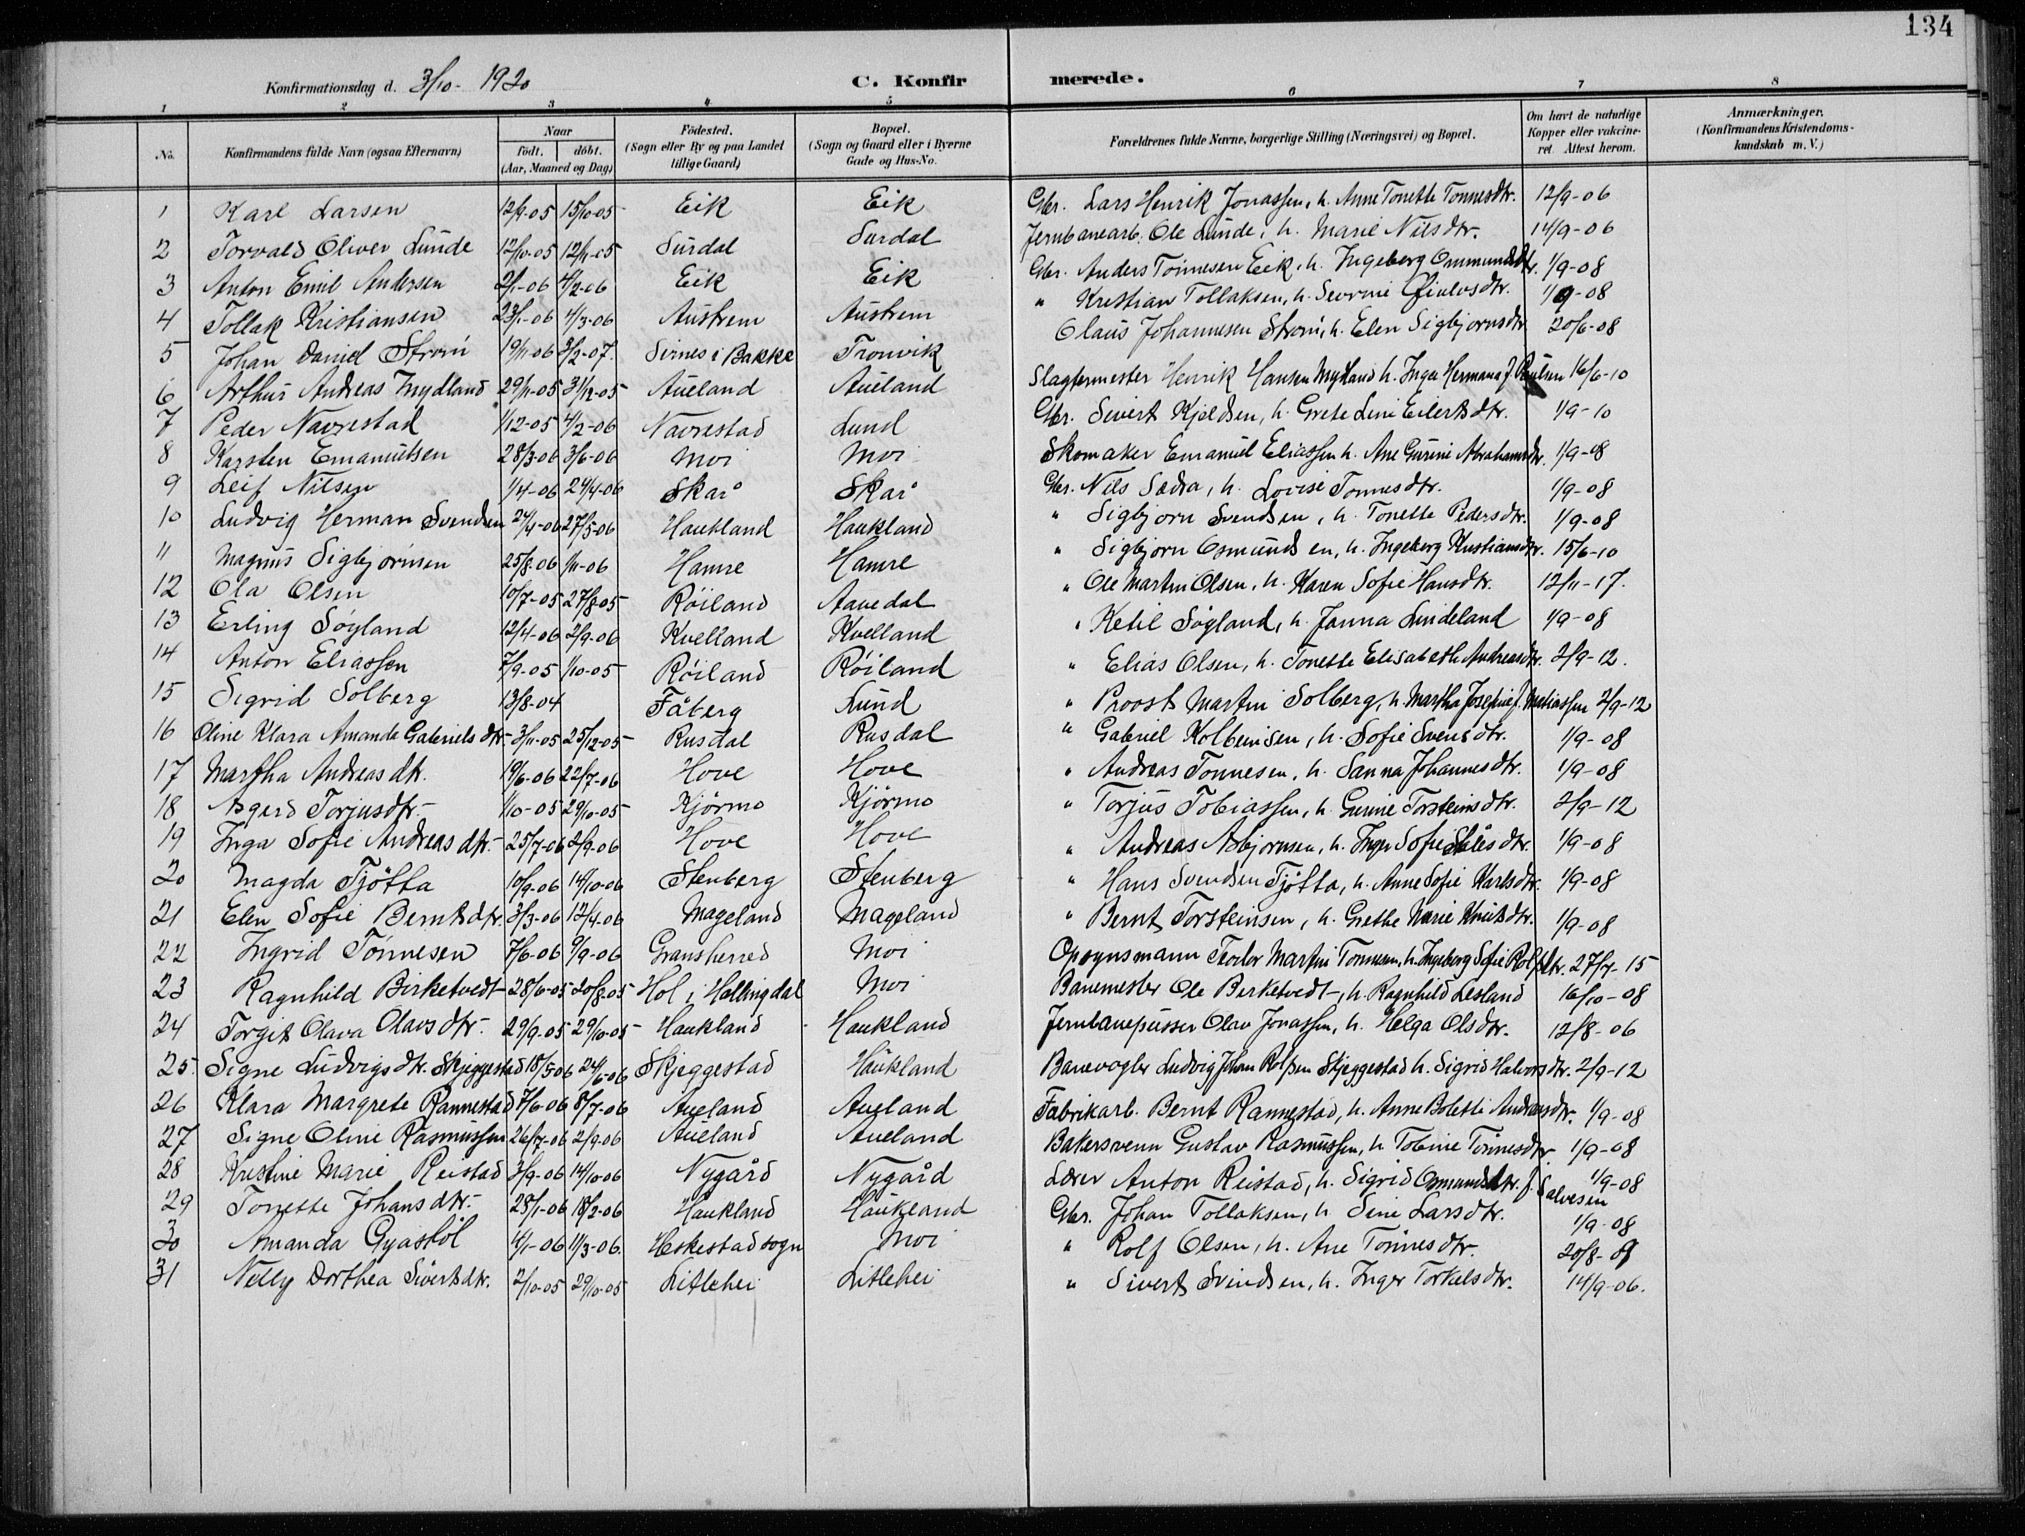 134
Konfirmationsdag d. 3/10- 1920 C. Konfirmerede.
1 2 3 4 5 6 7 8
No. Konfirmandens fulde Navn (ogsaa Efternavn) Naar födt. döbt. (Aar, Maaned og Dag) Födested. (Sogn eller By og paa Landet tillige Gaard) Bopæl. (Sogn og Gaard eller i Byerne Gade og Hus-No. Forældrenes fulde Navne, borgerlige Stilling (Næringsvei) og Bopæl. Om havt de naturlige Kopper eller vakcineret Attest herom. Anmærkninger. (Konfirmandens Kristendomskundskab m. V.)
1 Karl Larsen 12/9-05 15/10-05 Eik Eik Gbr. Lars Henrik Jonassen, h. Anne Tonette Tonnesdtr. 12/9-06
2 Torvald Oliver Lunde 12/10-05 12/11-05 Surdal Surdal Jernbanearb. Ole Lunde, h. Marie Nilsdtr. 14/9-06
3 Anton Emil Andersen 2/1-06 4/2-06 Eik Eik Gbr. Anders Tönnesen Eik, h. Ingeborg Ommundsdtr. 1/9-08
4 Tollak Kristiansen 23/1-06 4/3-06 Austrem Austrem " Kristian Tollaksen, h. Severine 1/9-08
5 Johan Daniel Strøm 19/11-06 3/2-07. Sirnes i Bakke Tronvik Olaus Johannesen Strøm, h. Elen Sigbjornsdtr 20/6-08
6 Arthur Andreas Mydland 29/11-05 31/12-05 Aueland Aueland Slagtermester Henrik Hansen Mydland h. Inger Hermana f. Paulsen 16/6-10
7 Peder Navrestad 1/12-05 4/2-06 Navrestad Lund Gbr. Sivert Kjeldsen, h. Grete Line Eilertsdtr. 1/9-10
8 Karsten Emanuelsen 28/3-06 3/6-06 Moi Moi Skomaker Emanuel Eliassen h. Ane Gurine Abrahamsdtr. 1/9-08
9 Leif Nilsen 1/4-06 24/4-06 Skar Skar Gbr. Nils Sædra, h. Lovise Tonnesdtr. 1/9-08
10 Ludvig Herman Svendsen 24/4-06 27/5-06 Haukland Haukland " Sigbjorn Svendsen, h. Tonette Pedersdtr. 1/9-08
11 Magnus Sigbjørnsen 25/8-06 1/11-06 Hamre Hamre " Sigbjorn Osmundsen, h. Ingeborg Kristiansdtr. 15/6-10
12 Ola Olsen 10/7-05 27/8-05 Röiland Aavedal " Ole Martin Olsen, h. Karen Sofie Hansdtr. 12/11-17.
13 Erling Søyland 12/4-06 2/9-06 Kvelland Kvelland " Ketil Søyland, h. Janna Lindeland 1/9-08
14 Anton Eliassen 7/9-05 1/10-05 Röiland Röiland " Elias Olsen, h. Tonette Elisabeth Andreasdtr. 2/9-12.
15 Sigrid Solberg 13/8-04 Fåberg Lund " Proost Martin Solberg, h. Martha Josefine f. Matiassen 2/9-12
16 Oline Klara Amanda Gabrielsdtr. 3/11-05 25/12-05 Rusdal Rusdal " Gabriel Kolbeinsen, h. Sofie Svensdtr. 1/9-08
17 Martha Andreasdtr. 19/6-06 22/7-06 Hove Hove " Andreas Tonnesen, h. Sanna Johannesdtr. 1/9-08
18 Asgerd Torjusdtr. 1/10-05 29/10-05 Kjörmo Kjörmo " Torjus Tobiassen, h. Gurine Torsteinsdtr. 2/9-12
19 Inga Sofie Andreasdtr. 25/7-06 2/9-06 Hove Hove " Andreas Asbjornsen, h. Inger Sofie 1/9-08
20 Magda Tjötta 10/9-06 14/10-06 Stenberg Stenberg " Hans Svendsen Tjötta, h. Anne Sofie Karlsdtr. 1/9-08
21 Elen Sofie Berntsdtr. 3/3-06 12/4-06 Mageland Mageland " Bernt Torsteinsen, h. Grethe Marie Knutsdtr. 1/9-08
22 Ingrid Tønnesen 7/6-06 9/9-06 Gransherred Moi Opsynsmann Teodor Martin Tonnesen, h. Ingeborg Sofie Rolfsdtr. 27/7-15
23 Ragnhild Birketvedt 28/6-05 20/8-05 Hol i Hallingdal Moi Banemester Ole Birketvedt, h. Ragnhild Lesland 16/10-08
24 Torgit Olava Olavsdtr. 29/9-05 29/10-05 Haukland Haukland Jernbanepusser Olav Jonassen, h. Helga Olsdtr. 12/8-06
25. Signe Ludvigsdtr. Skjeggestad 18/5-06 24/6-06 Skjeggestad Haukland Banevogter Ludvig Johan Rolfsen Skjeggestad h. Sigrid Halvorsdtr. 2/9-12
26 Klara Margrete Rannestad 7/6-06 8/7-06 Aueland Aueland Fabrikarb. Bernt Rannestad, h. Anne Bolette Andreasdtr. 1/9-08
27 Signe Oline Rasmussen 26/7-06 2/9-06 Aueland Aueland Bakersvenn Gustav Rasmussen, h. Tobine Tönnesdtr. 1/9-08
28 Kristine Marie Reistad 3/9-06 14/10-06 Nygård Nygård Lærer Anton Reistad, h. Sigrid Osmundsdtr. f. Salvesen 1/9-08
29 Tonette Johansdtr. 28/1-06 18/2-06 Haukland Haukland Gbr. Johan Tollaksen, h. Sine Larsdtr. 1/9-08
30 Amanda Gyastöl 4/1-06 11/3-06. Heskestad sogn Moi " Rolf Olsen, h. Ane Tönnesdtr. 20/8-09
31 Nelly Dorthea Sivertsdtr. 2/10-05 29/10-05 Litlehei Litlehei " Sivert Svendsen, h. Inger Torkelsdtr. 14/9-06.